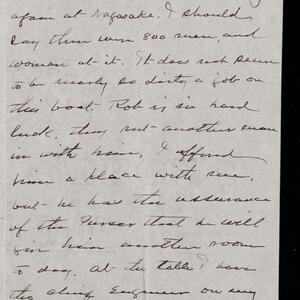 again at Nagasake. I should
say there were 800 men, and
women at it. It does not seem
to be nearly so dirty a job on
this boat. Rob is in hard
luck, they put another man
in with him, I offered
him a place with me,
but he has the assurance
of the Purser that he will
give him another room
to day. At the table I have
the chief Engineer on my